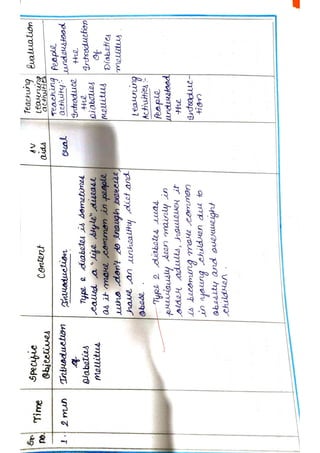 Sr. Time Specific Content AV Teaching Evaluation
no. Objectives aids Learning
activities
1. 2 min Introduction
of
Diabetes
Mellitus
Introduction
Type 2 diabetes is sometimes
called a "life style" disease
as it more common in people
who don't do enough exercise,
have an unhealthy diet and
obese.
Type 2 diabetes was
previously seen mainly in
older adults, however it
is becoming more common
in young children due to
obesity and overweight
children.
oral
Teaching
activity:
Introduce
the
Diabetes
Mellitus
Learning
Activities:
People
understood
the
Introduc-
tion
People
understood
the
Introduction
of
Diabetes
Mellitus